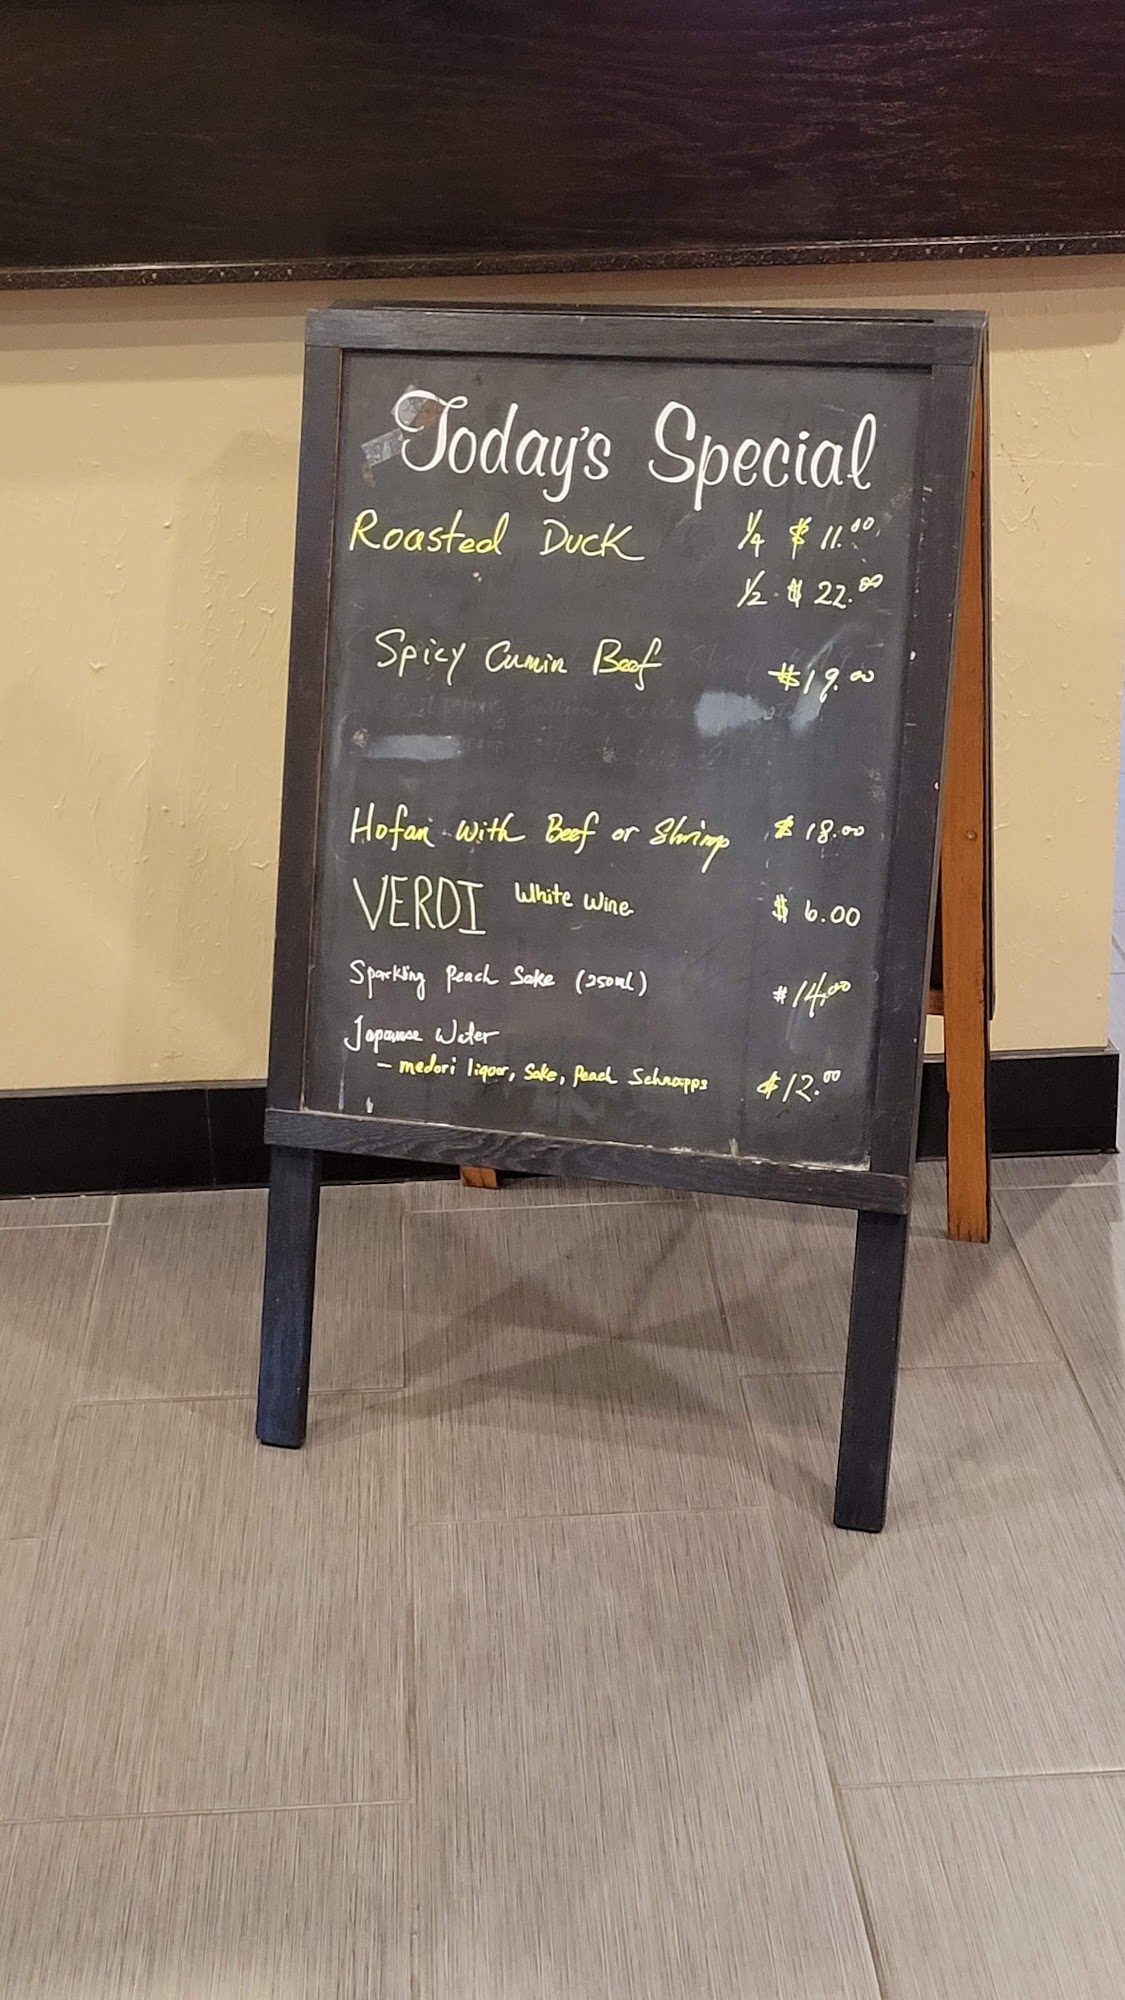 Today's Special
Roasted Duck 1/4 $11.00
1/2 $22.00
Spicy Cumin Beef $19.00
Hofan with Beef or Shrimp $18.00
VERDI White Wine $6.00
Sparkling Peach Sake (250ml) $14.00
Japanese Water
- medori liquor, Sake, Peach Schnapps $12.00